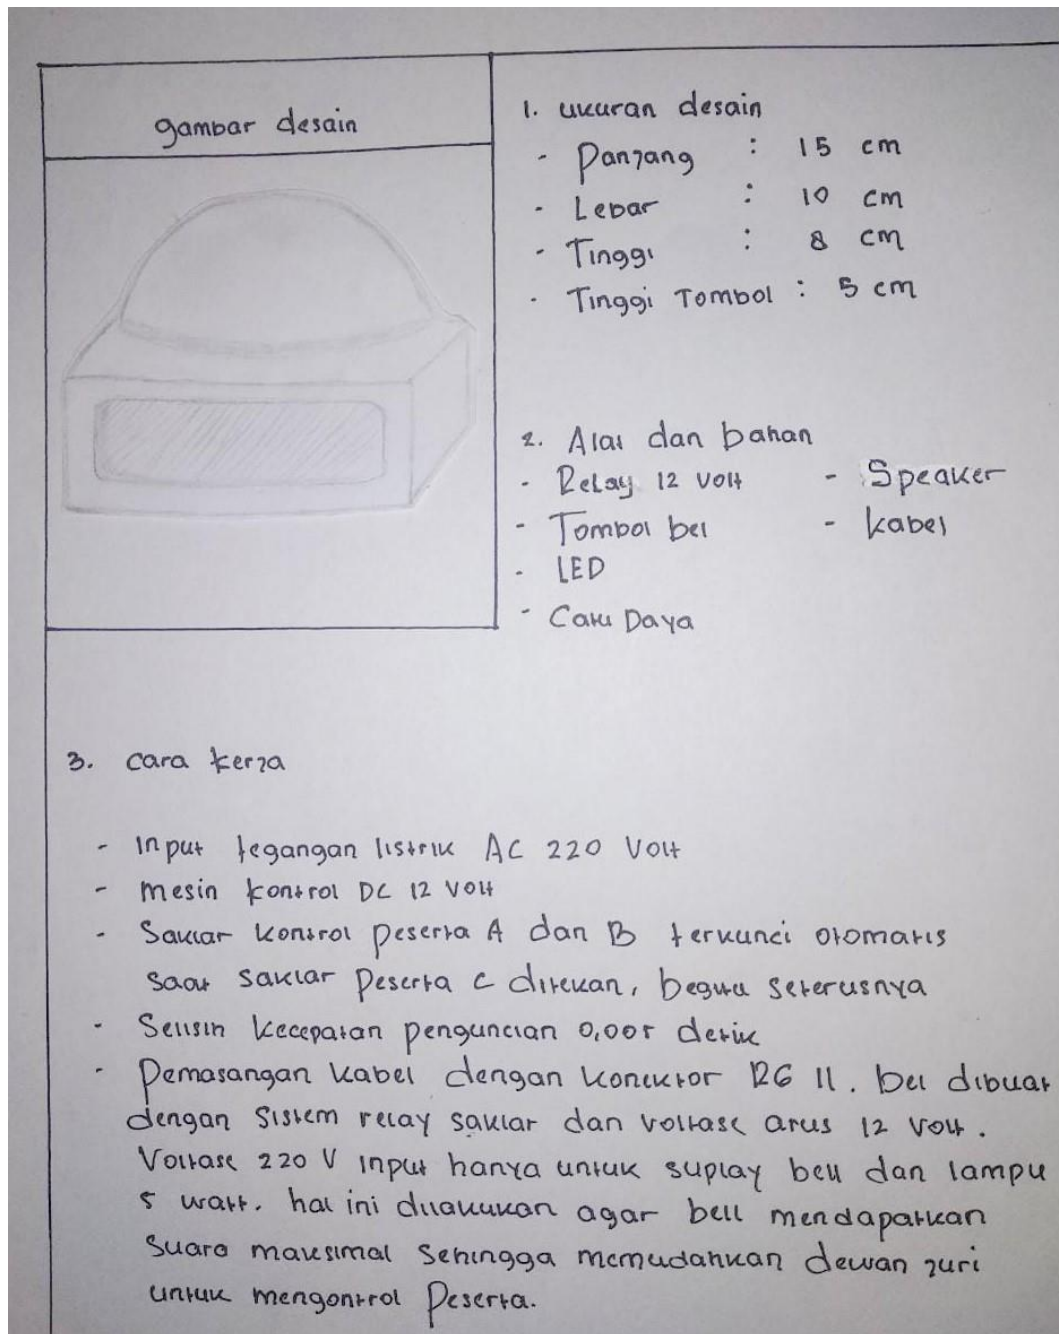 gambar desain
1. ukuran desain
- Panjang : 15 cm
- Lebar : 10 cm
- Tinggi : 8 cm
- Tinggi Tombol : 5 cm
2. Alat dan bahan
- Relay 12 volt - Speaker
- Tombol bel - kabel
- LED
- Catu Daya
3. cara kerja
- Input tegangan listrik AC 220 Volt
- mesin kontrol DC 12 volt
- Saklar kontrol peserta A dan B terkunci otomatis
saat saklar peserta C ditekan, begitu seterusnya
- Selisih kecepatan penguncian 0,005 detik
- Pemasangan kabel dengan konektor RG 11. bel dibuat
dengan sistem relay saklar dan voltase arus 12 volt.
Voltase 220 V input hanya untuk suplay bell dan lampu
5 watt. hal ini dilakukan agar bell mendapatkan
suara maksimal sehingga memudahkan dewan juri
untuk mengontrol peserta.